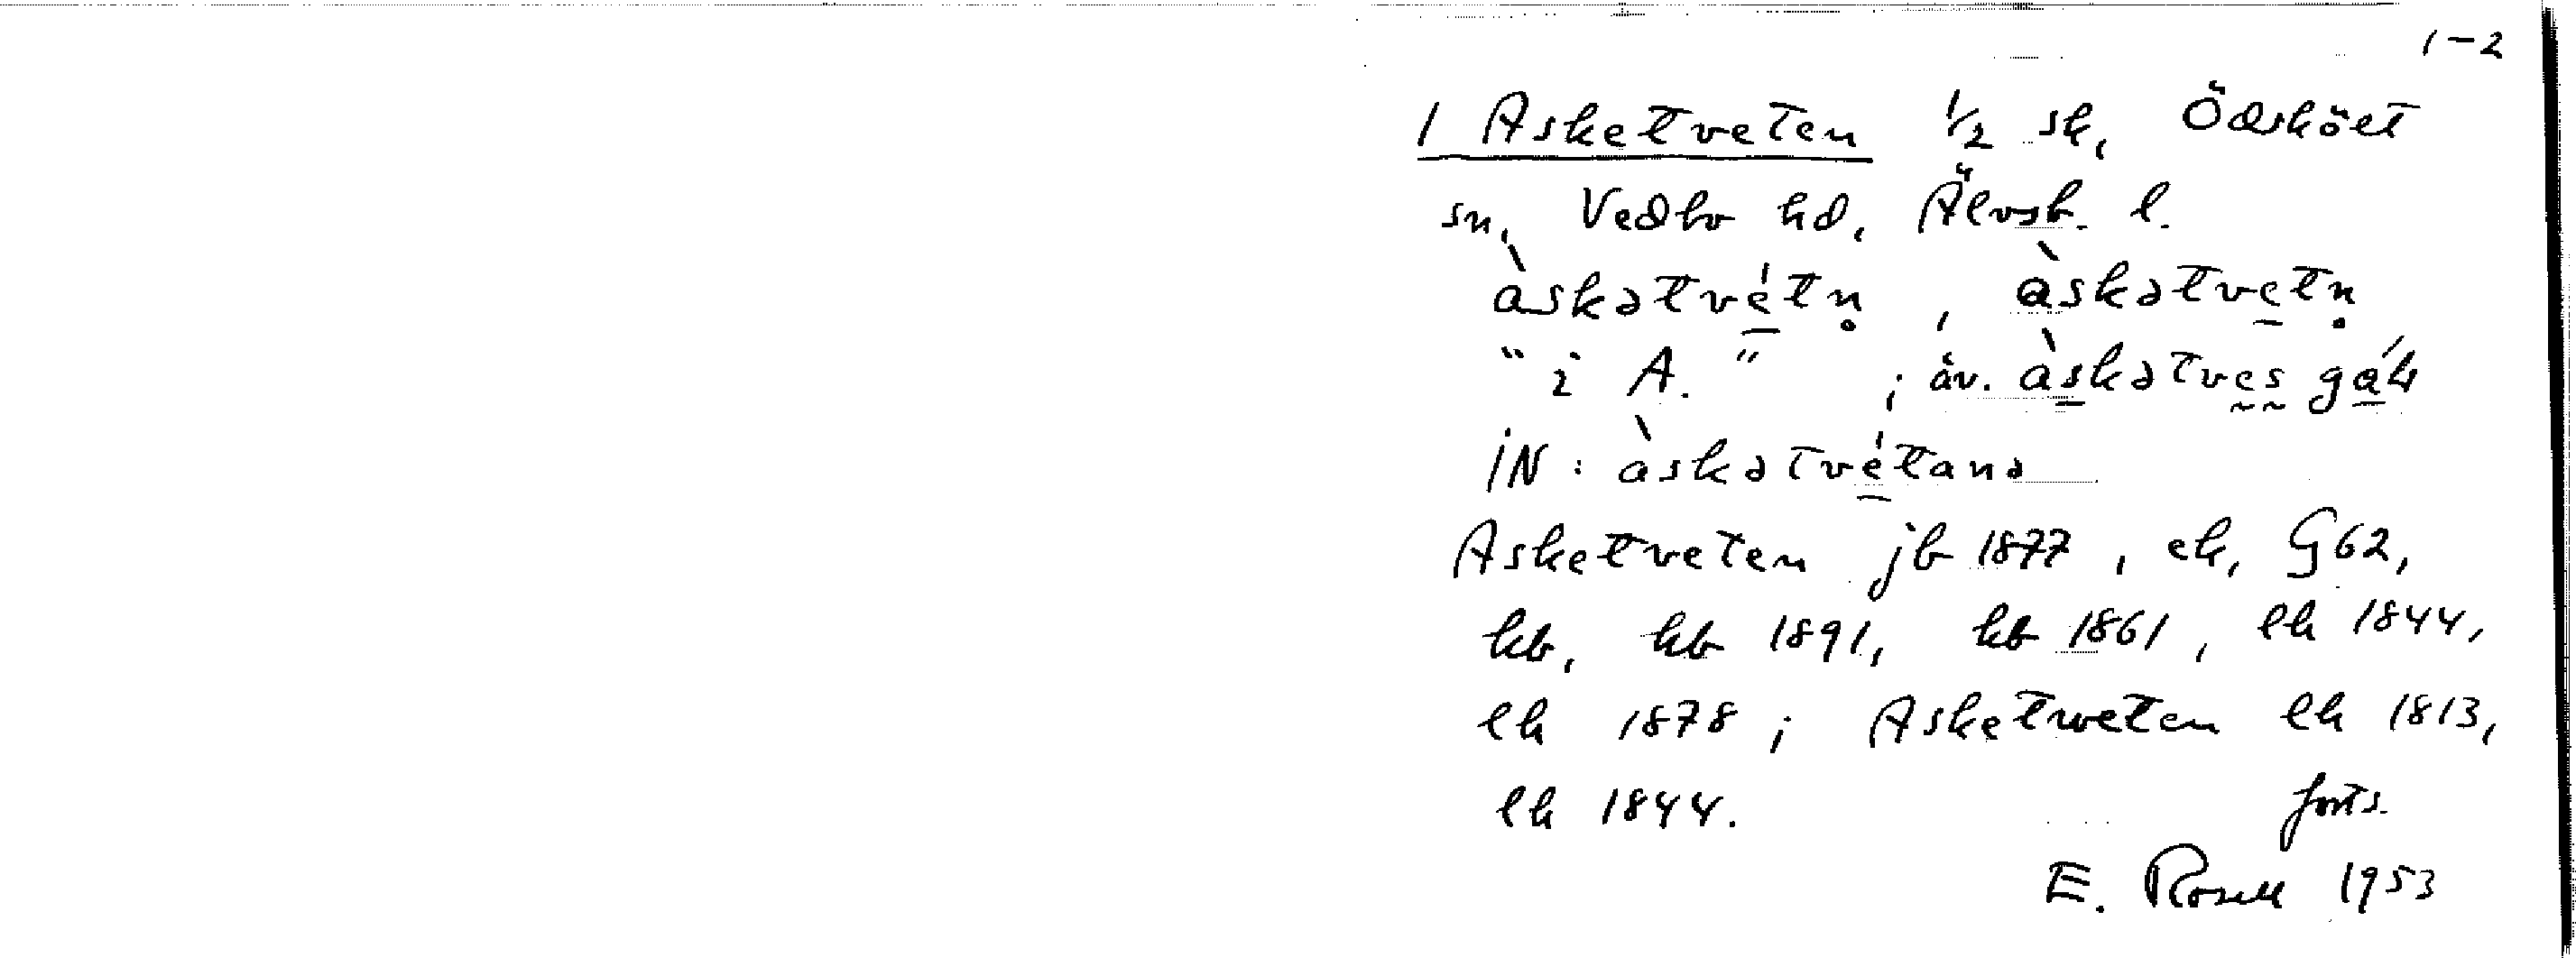 1-2
1 Asketveten 1/2 sk, Ödsköet
sn, Vedbo hd, Älvsb. l.
àskətvétn̥ , àskətvetn̥
"i A." ; äv. àskətves
IN: àskətvétanə
Asketveten jb 1877, ek, G62,
kb, kb 1891, kb 1861, lh 1844,
lh 1878; Asketweten lh 1813,
lh 1844. forts.
E. Rosell 1953